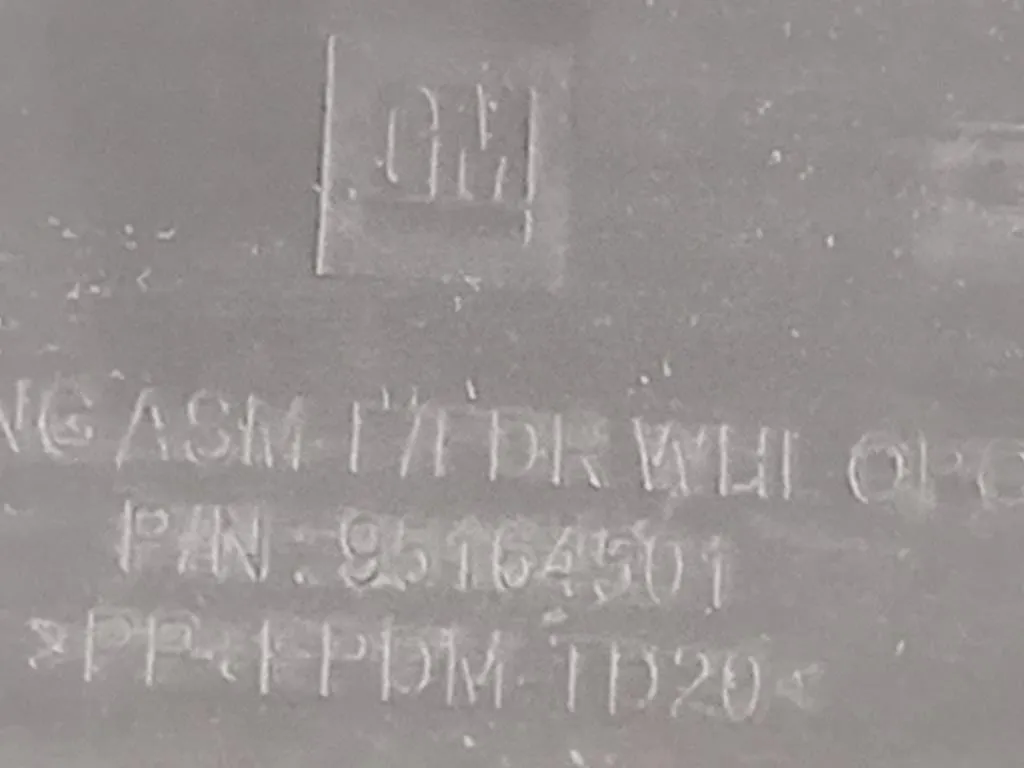 GM
NG ASM F/FDR WHL OPG
P/N: 95164501
>PP+EPDM-TD20<